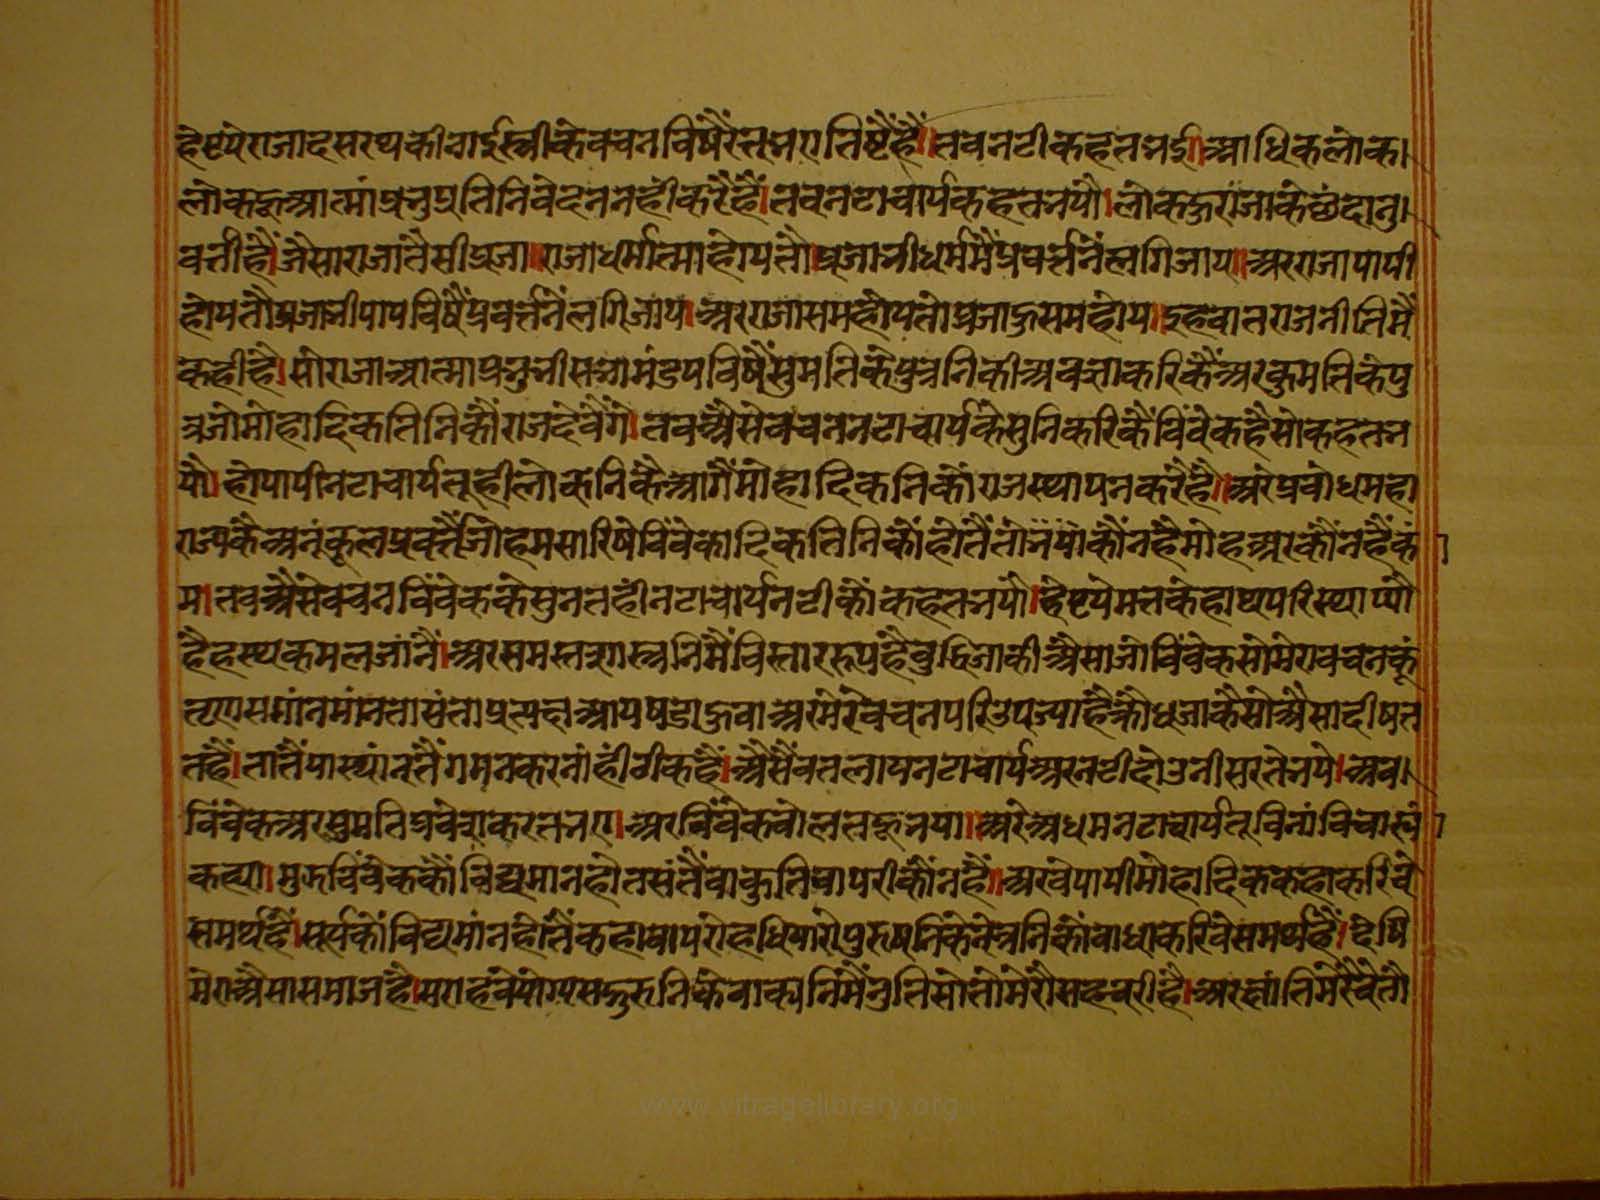 हे प्रिये राजा दसरथ की नाई स्त्री के वचन विषैं रत प्रभु तिष्टैं हैं। तब नटी कहत भई। आधिक लोका।
लोक हू आत्मां प्रभु प्रति निवेदन नहीं करैं हैं। तब नटाचार्य कहत भयौ। लोक हु राजा के छंदानु।
वर्ती हैं। जैसा राजा तैसी प्रजा। राजा धर्मात्मा होय तौ। प्रजा भी धर्म मैं प्रवर्त्तनें लगि जाय। अर राजा पापी
होय तौ प्रजा भी पाप विषैं प्रवर्त्तनें लगि जाय। अर राजा सम होय तो प्रजा हु सम होय। इह वात राजनीति मैं
कही है। सो राजा आत्मा प्रभु भी सभा मंडप विषैं सुमति के पुत्रनि की अवज्ञा करि कैं अर कुमति के पु
त्र जो मोहादिक तिनि कौं राज देवैंगे। तब अैसे वचन नटाचार्य के सुनि करि कैं विवेक है सो कहत भ
यो। हो पापी नटाचार्य तू ही लोकनि कै आगैं मोहादिकनि कों राज स्थापन करै है। अरे प्रबोध महा
राज्य कै अनुकूल प्रवर्तै जो हम सारिषे विवेकादिक तिनि कों होतैं तो भया कौंन है मोह अर कौंन है कं
म। तब अैसे वचन विवेक के सुनत हीं नटाचार्य नटी कों कहत भयौ। हे प्रिये मत के हाथ परि स्थाप्यौ
है हस्थ कमल जांनै। अर समस्त शास्त्रनि मैं विस्तार रूप है बुद्धि जाकी अैसा जो विवेक सो मेरा वचन कूं
तृण समांन मांनता संता प्रत्यक्ष आय षडा हुवा अर मेरे वचन परि उपज्या है क्रोध जाकै सो अैसा दीषत
त है। तातैं या स्थांन तैं गमन करनां हीं ठीक है। अैसैं बतलाय नटाचार्य अर नटी दोउ नीसरते भये। अब।
विवेक अर सुमति प्रवेश करत भए। अर विवेक बोलत हू भया। अरे अधम नटाचार्य तू विनां विचास्यं
कह्या। मुझ विवेक कौं विद्यमान होत संतैं वाकुति वापरी कौंन है। अर वे पापी मोहादिक कहा करिवे
समर्थ हैं। सूर्य कों विद्यमांन होतें कहा वापरो हधियारो पुरुषनि के नेत्रनि कों बाधा करिवे समर्थ है। देषि
मेरा अैसा समाज है। मराहवे योग्य सद्गुरुनि के वाक्यनि मैं नुति सो तो मेरी सहचरी है। अर क्षांति मेरै वे तौ